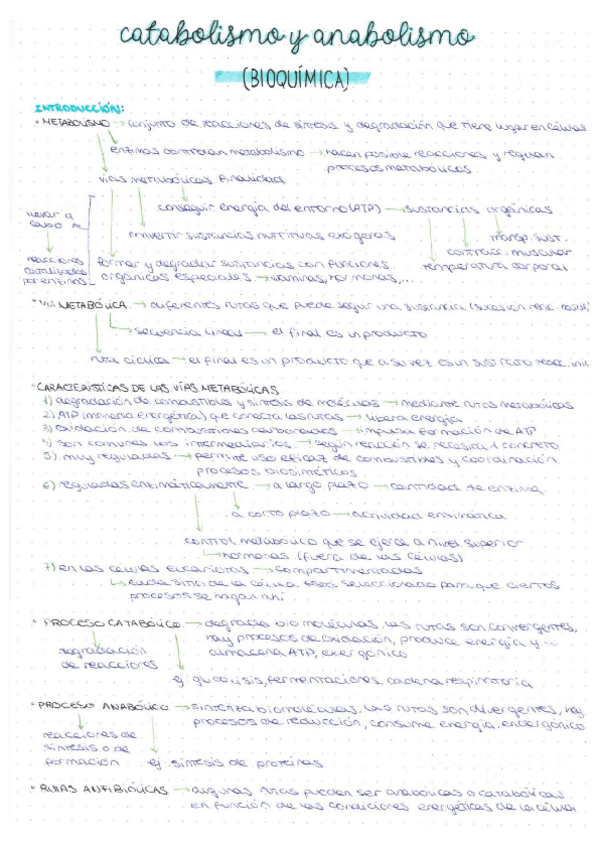 catabolismo y anabolismo
(BIOQUÍMICA)
INTRODUCCIÓN:
• METABOLISMO → conjunto de reacciones de síntesis y degradación que tiene lugar en células
enzimas controlan metabolismo → hacen posible reacciones y regulan
procesos metabólicos
vías metabólicas finalidad
conseguir energía del entorno (ATP) → sustancias orgánicas
llevar a
cabo x
convertir sustancias nutritivas exógenas
transp. sust.
contracc. muscular
temperatura corporal
reacciones
catalizadas
por enzimas
formar y degradar sustancias con funciones
orgánicas especiales → vitaminas, hormonas,...
• VÍA METABÓLICA → diferentes rutas que puede seguir una sustancia (sucesión reacc.
secuencia lineal → el final es un producto
ruta cíclica → el final es un producto que a su vez es un sustrato reacc. inic
• CARACTERÍSTICAS DE LAS VÍAS METABÓLICAS
1) degradación de combustibles y síntesis de moléculas → mediante rutas metabólicas
2) ATP (moneda energética) que conecta las rutas → libera energía
3) oxidación de combustibles carbonados → impulsa formación de ATP
4) son comunes los intermediarios → según reacción se necesita 1 concreto
5) muy reguladas → permite uso eficaz de combustibles y coordinación
procesos biosintéticos
6) reguladas enzimáticamente → a largo plazo → cantidad de enzima
a corto plazo → actividad enzimática
control metabólico que se ejerce a nivel superior
hormonas (fuera de las células)
7) en las células eucariotas → compartimentadas
↳ cada sitio de la célula está seleccionado para que ciertos
procesos se hagan ahí
• PROCESO CATABÓLICO → degrada biomoléculas, las rutas son convergentes,
hay procesos de oxidación, produce energía y
almacena ATP, exergónico
degradación
de reacciones
ej glucolisis, fermentaciones, cadena respiratoria
• PROCESO ANABÓLICO → sintetiza biomoléculas, las rutas son divergentes, hay
procesos de reducción, consume energía, endergónico
reacciones de
síntesis o de
formación
ej síntesis de proteínas
• RUTAS ANFIBÓLICAS → algunas rutas pueden ser anabólicas o catabólicas
en función de las condiciones energéticas de la célula